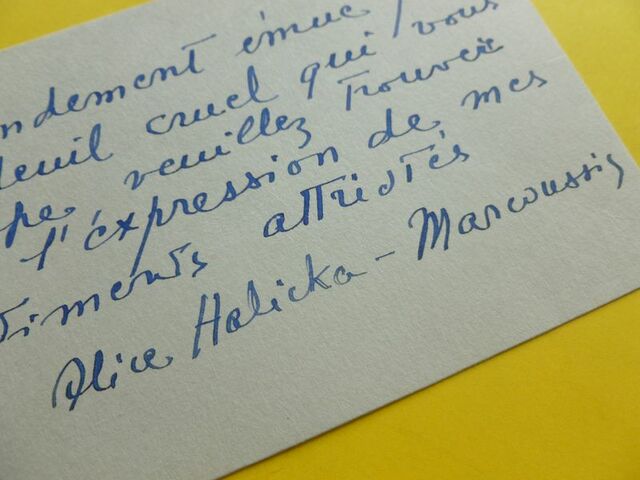 ndement émue
deuil cruel qui vous
pe, veuillez trouver
l'expression de mes
timents attristés
Alice Halicka - Marcoussis